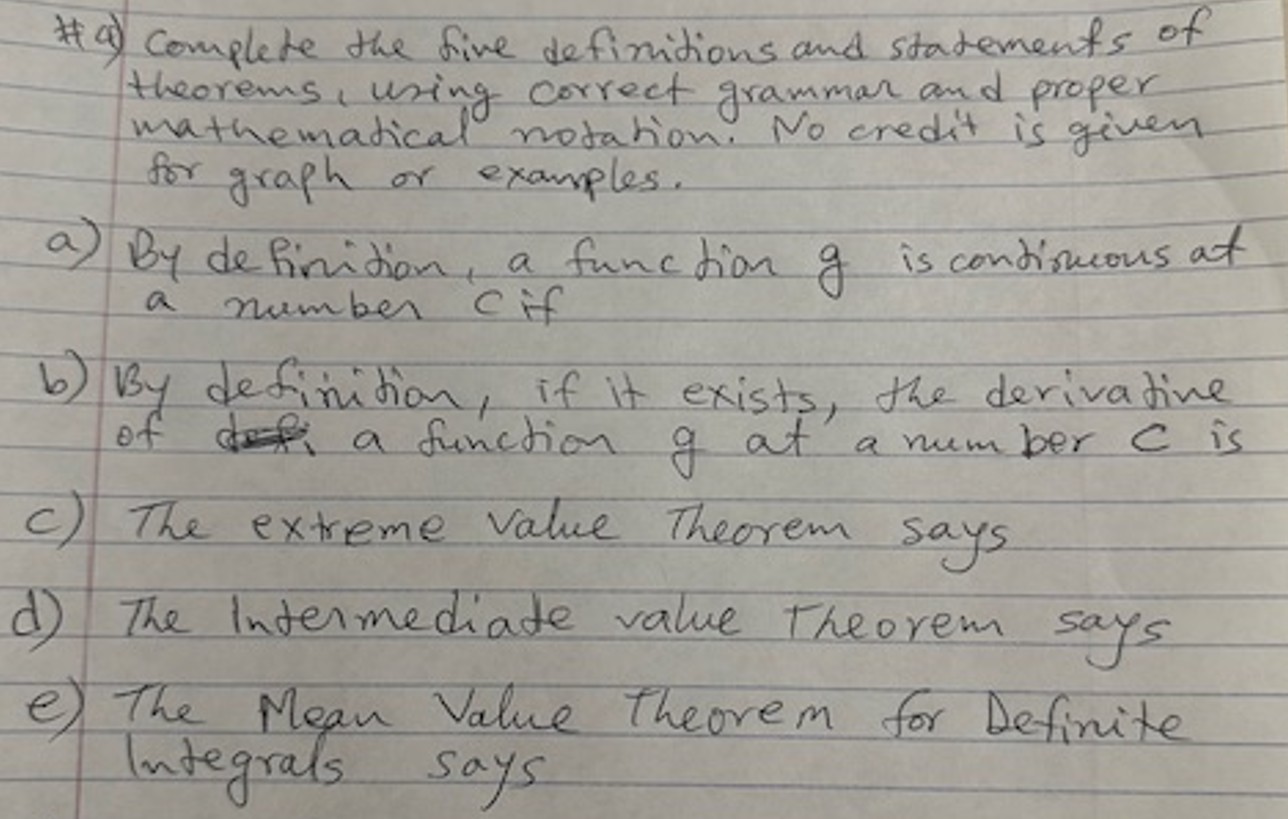 #9) Complete the five definitions and statements of
theorems, using correct grammar and proper
mathematical notation. No credit is given
for graph or examples.
a) By definition, a function g is continuous at
a number c if
b) By definition, if it exists, the derivative
of a function g at a number c is
c) The extreme value Theorem says
d) The Intermediate value Theorem says
e) The Mean Value Theorem for Definite
Integrals says